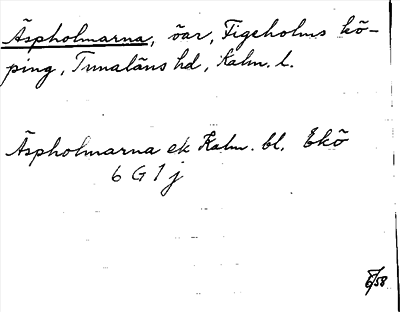 Äspholmarna, öar, Figeholms kö-
ping, Tunaläns hd, Kalm. l.
Äspholmarna ek Kalm. bl. Ekö
6 G 1 j
6/58